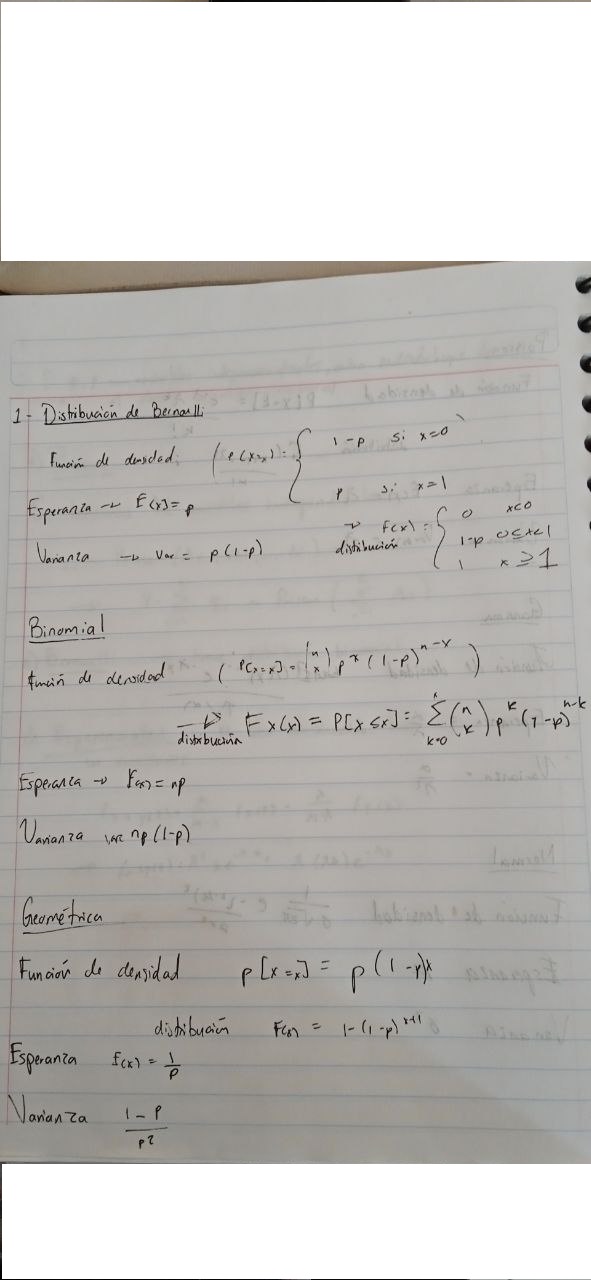 1- Distribución de Bernoulli
Función de densidad (P(X=x)= { 1-p si x=0
p si x=1
Esperanza → E(x)=p
Varianza → Var = p(1-p)
→ distribución F(x) = { 0 x<0
1-p 0≤x<1
1 x≥1
Binomial
Función de densidad ( P[X=x] = (n x) p^x (1-p)^{n-x} )
→ distribución Fx(x) = P[X≤x] = Σ_{k=0}^{x} (n k) p^k (1-p)^{n-k}
Esperanza → E(x)=np
Varianza Var np(1-p)
Geométrica
Función de densidad p[x=x] = p(1-p)^x
distribución F(x) = 1-(1-p)^{x+1}
Esperanza E(x) = 1/p
Varianza 1-p / p²